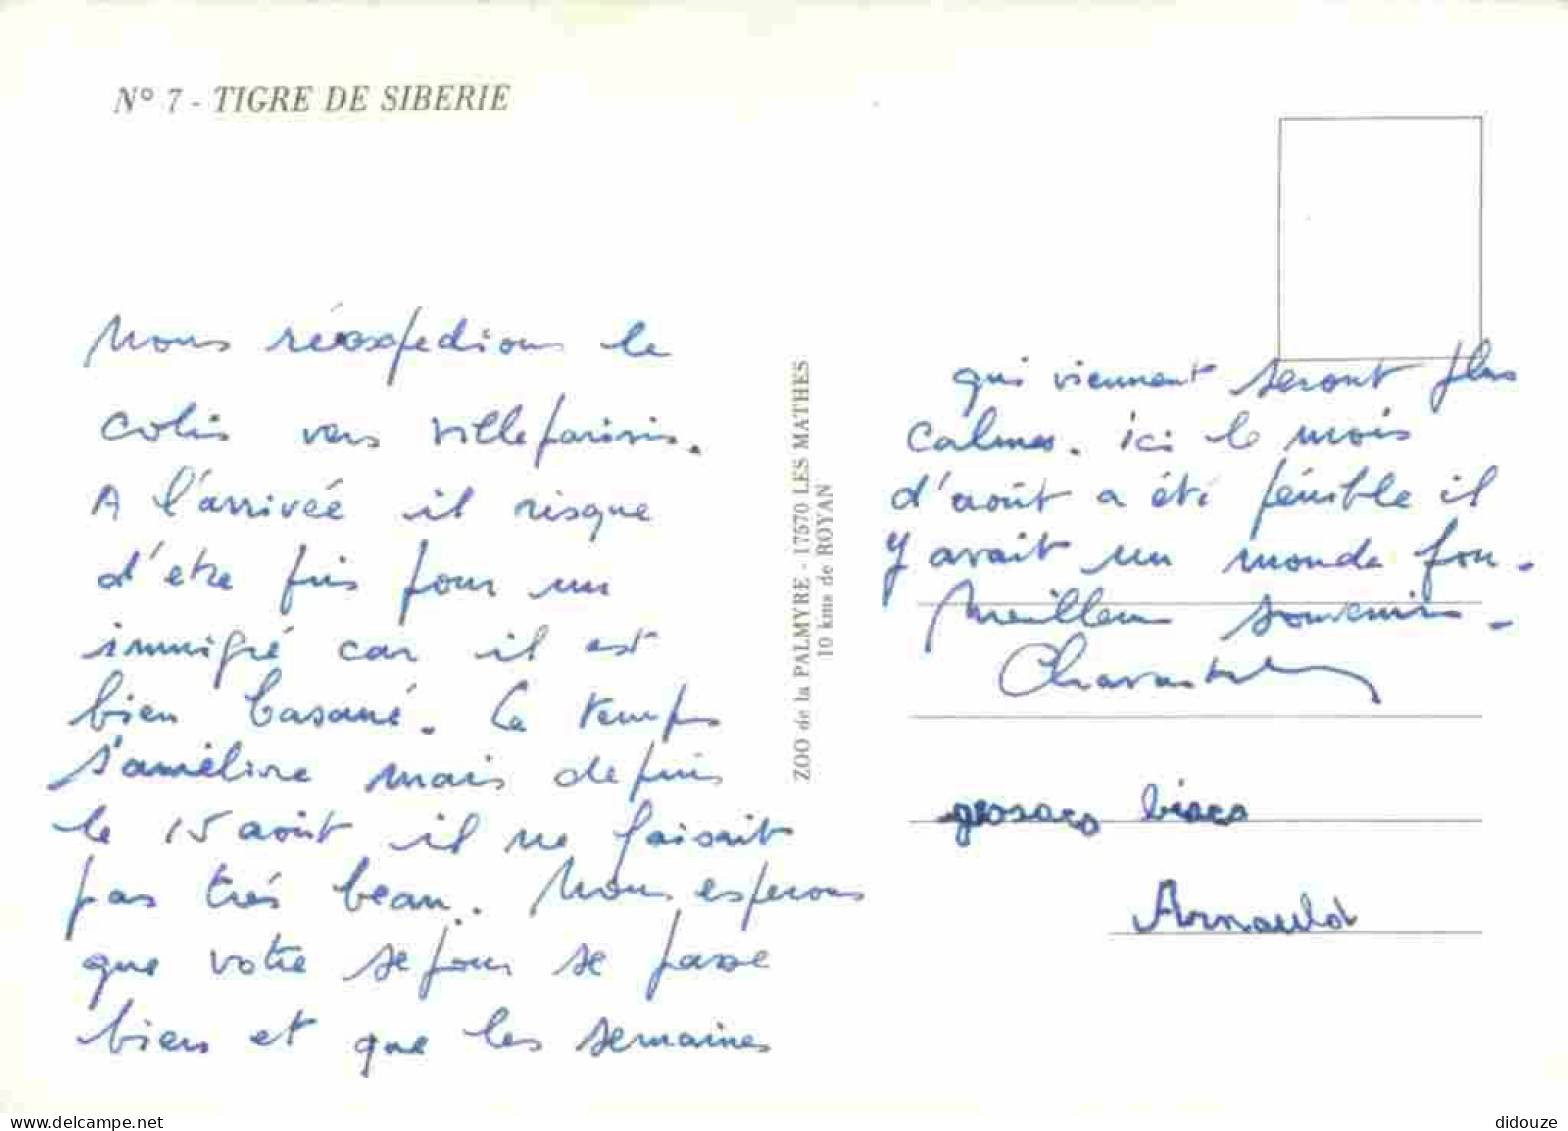 N° 7 - TIGRE DE SIBERIE
Nous réexpedions le
colis vers villeparisis.
A l'arrivée il risque
d'etre pris pour un
immigré car il est
bien basané. Le temps
s'améliore mais depuis
le 15 août il ne faisait
pas trés beau. Nous esperons
que votre sejour se passe
bien et que les semaines
ZOO de la PALMYRE - 17570 LES MATHES
10 kms de ROYAN
qui viennent seront plus
calmes. ici le mois
d'août a été pénible il
y avait un monde fou.
Meilleurs souvenirs.
grosses bises
Arnauld
delcampe.net
didouze